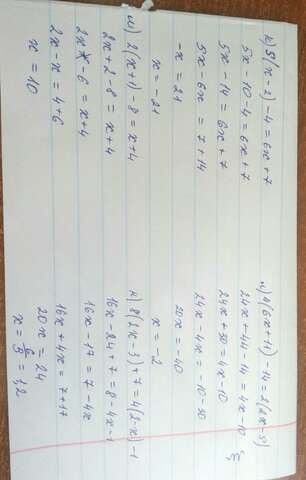 к) 5(x-2)-4=6x+7
5x-10-4=6x+7
5x-14=6x+7
5x-6x=7+14
-x=21
x=-21
2(x+1)-8=x+4
2x+2-8=x+4
2x-6=x+4
2x-x=4+6
x=10
4(6x+11)-14=2(2x-5)
24x+44-14=4x-10
24x+30=4x-10
24x-4x=-10-30
20x=-40
x=-2
8(2x-3)+7=4(2-x)-1
16x-24+7=8-4x-1
16x-17=7-4x
16x+4x=7+17
20x=24
x=6/5=1,2